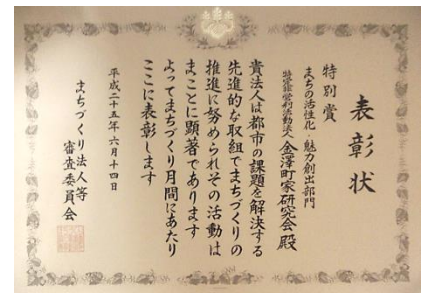 表彰状
特別賞
まちの活性化・魅力創出部門
特定非営利活動法人 金澤町家研究会 殿
貴法人は都市の課題を解決する
先進的な取組でまちづくりの
推進に努められその活動は
まことに顕著であります
よってまちづくり月間にあたり
ここに表彰します
平成二十五年六月十四日
まちづくり法人等
審査委員会